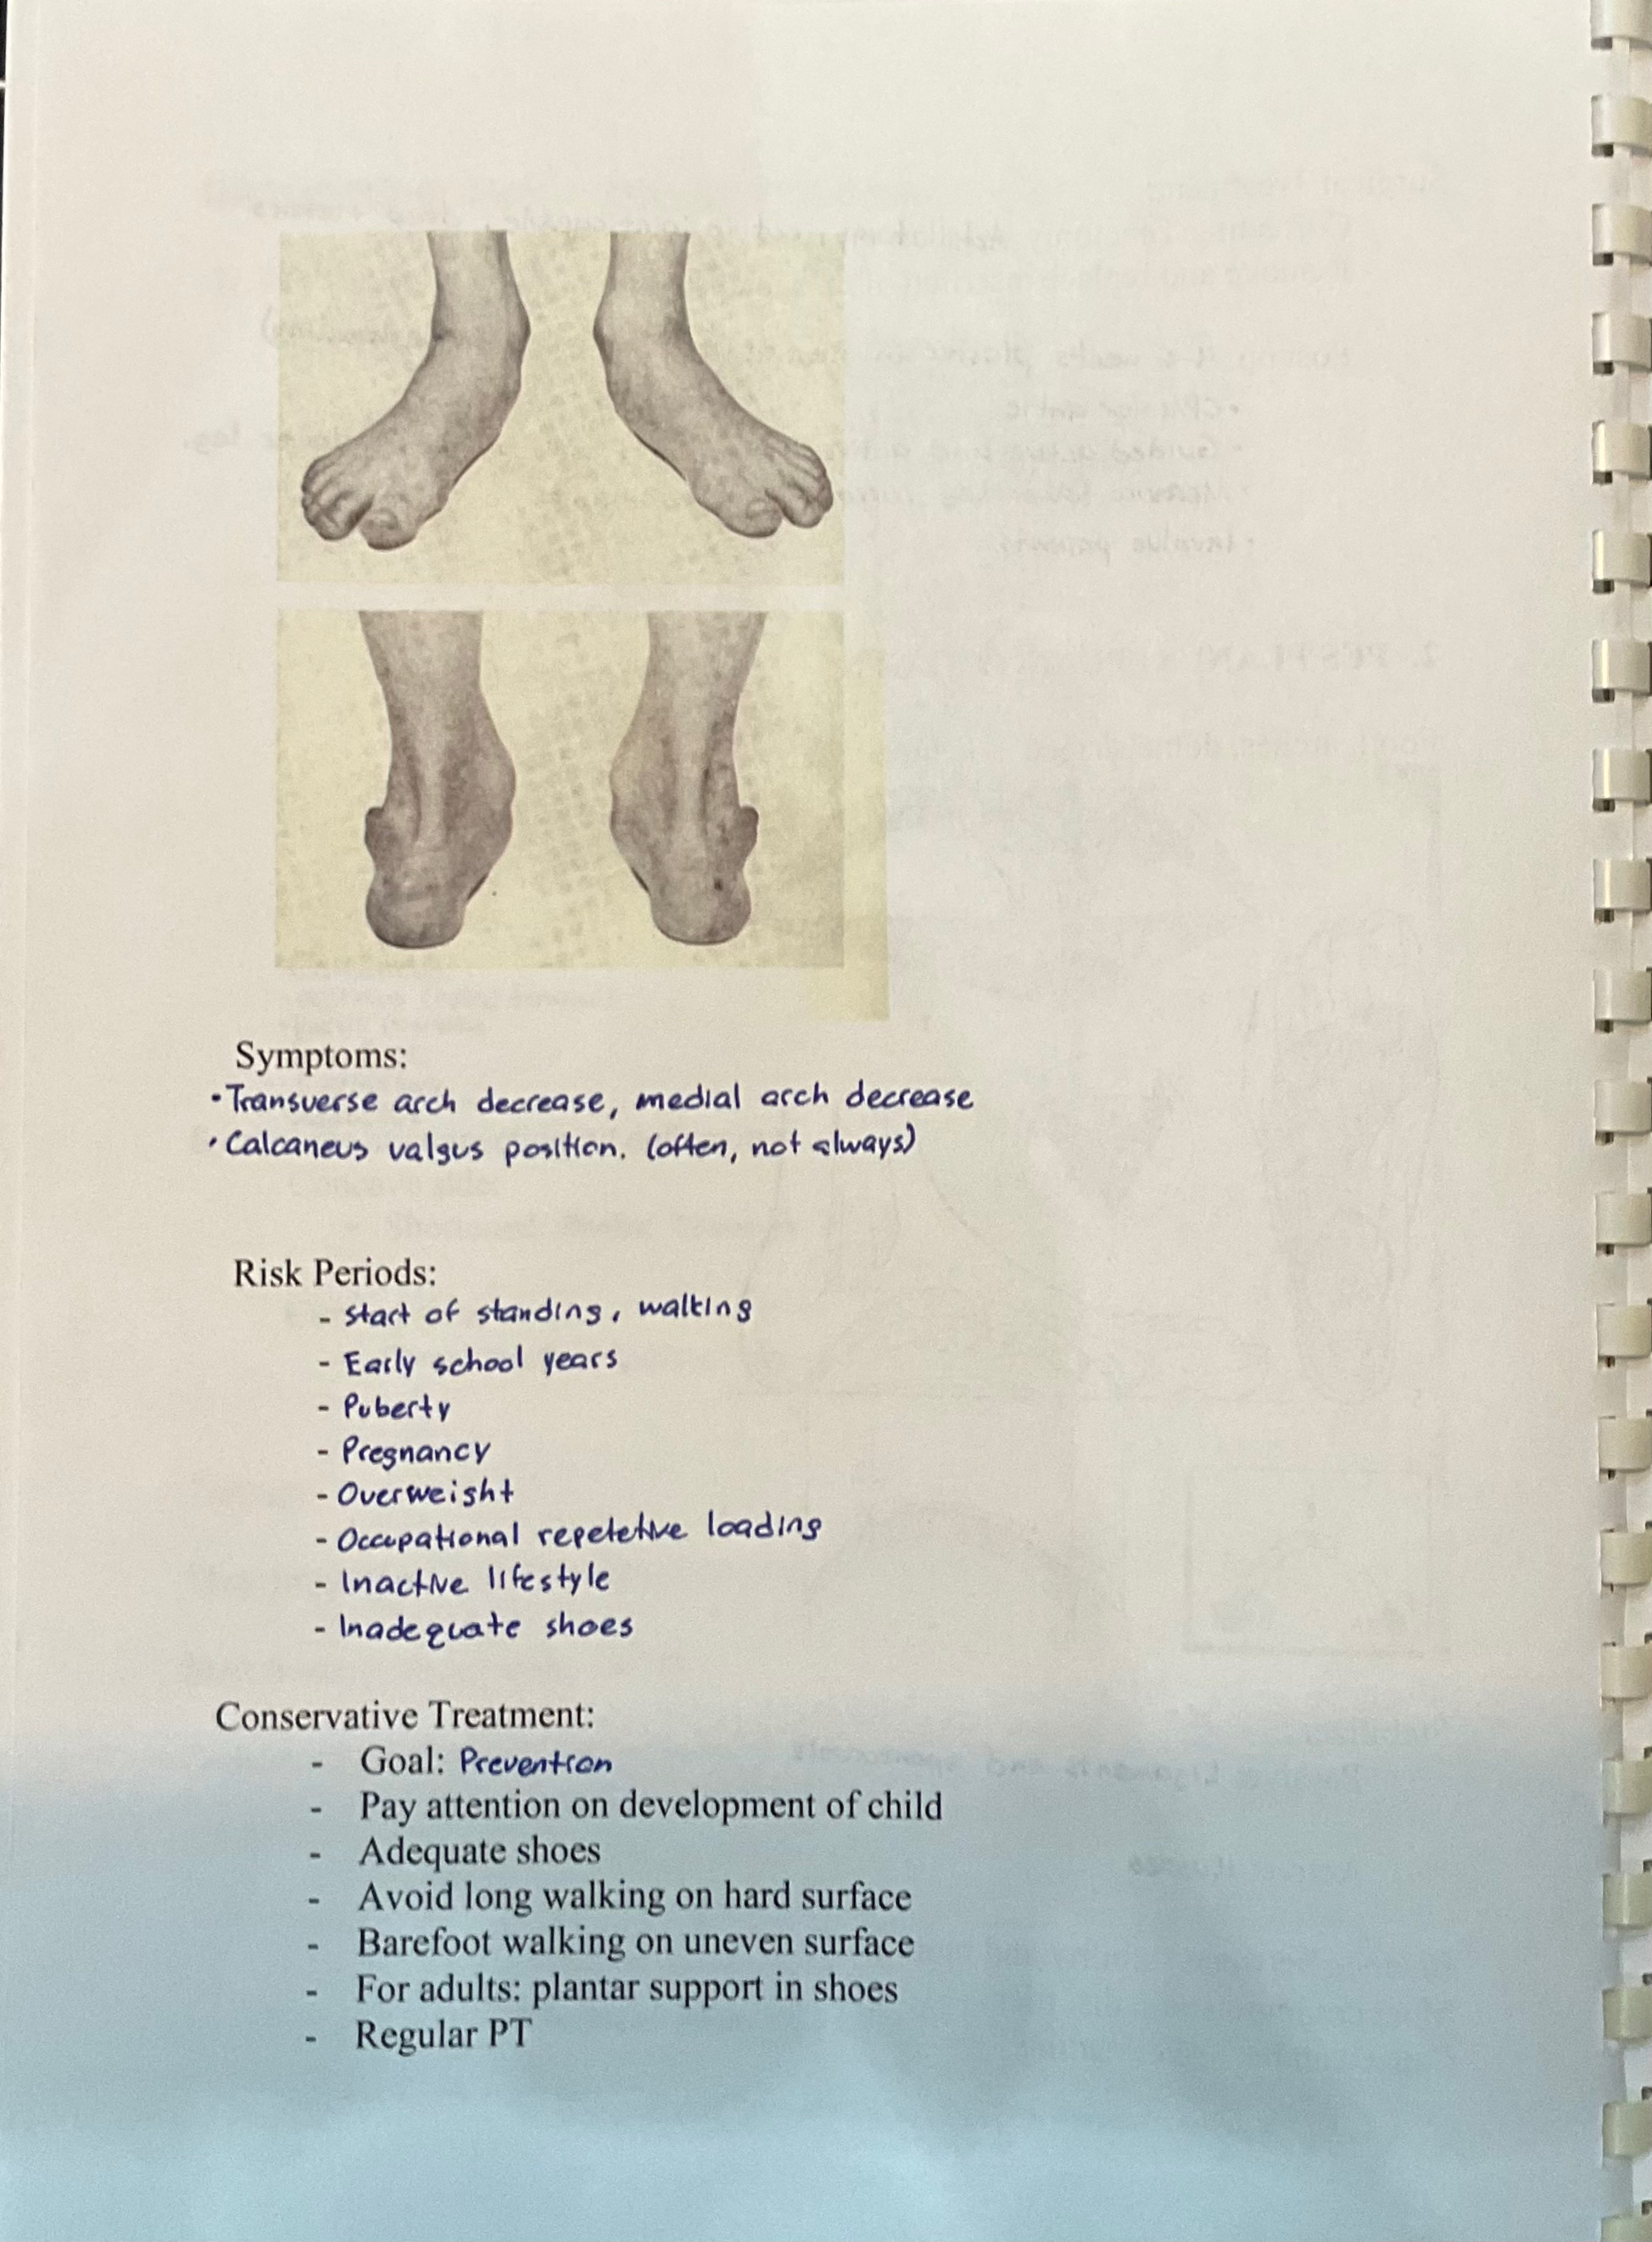 Symptoms:
• Transverse arch decrease, medial arch decrease
• Calcaneus valgus position. (often, not always)
Risk Periods:
- Start of standing, walking
- Early school years
- Puberty
- Pregnancy
- Overweight
- Occupational repetetive loading
- Inactive lifestyle
- Inadequate shoes
Conservative Treatment:
- Goal: Prevention
- Pay attention on development of child
- Adequate shoes
- Avoid long walking on hard surface
- Barefoot walking on uneven surface
- For adults: plantar support in shoes
- Regular PT